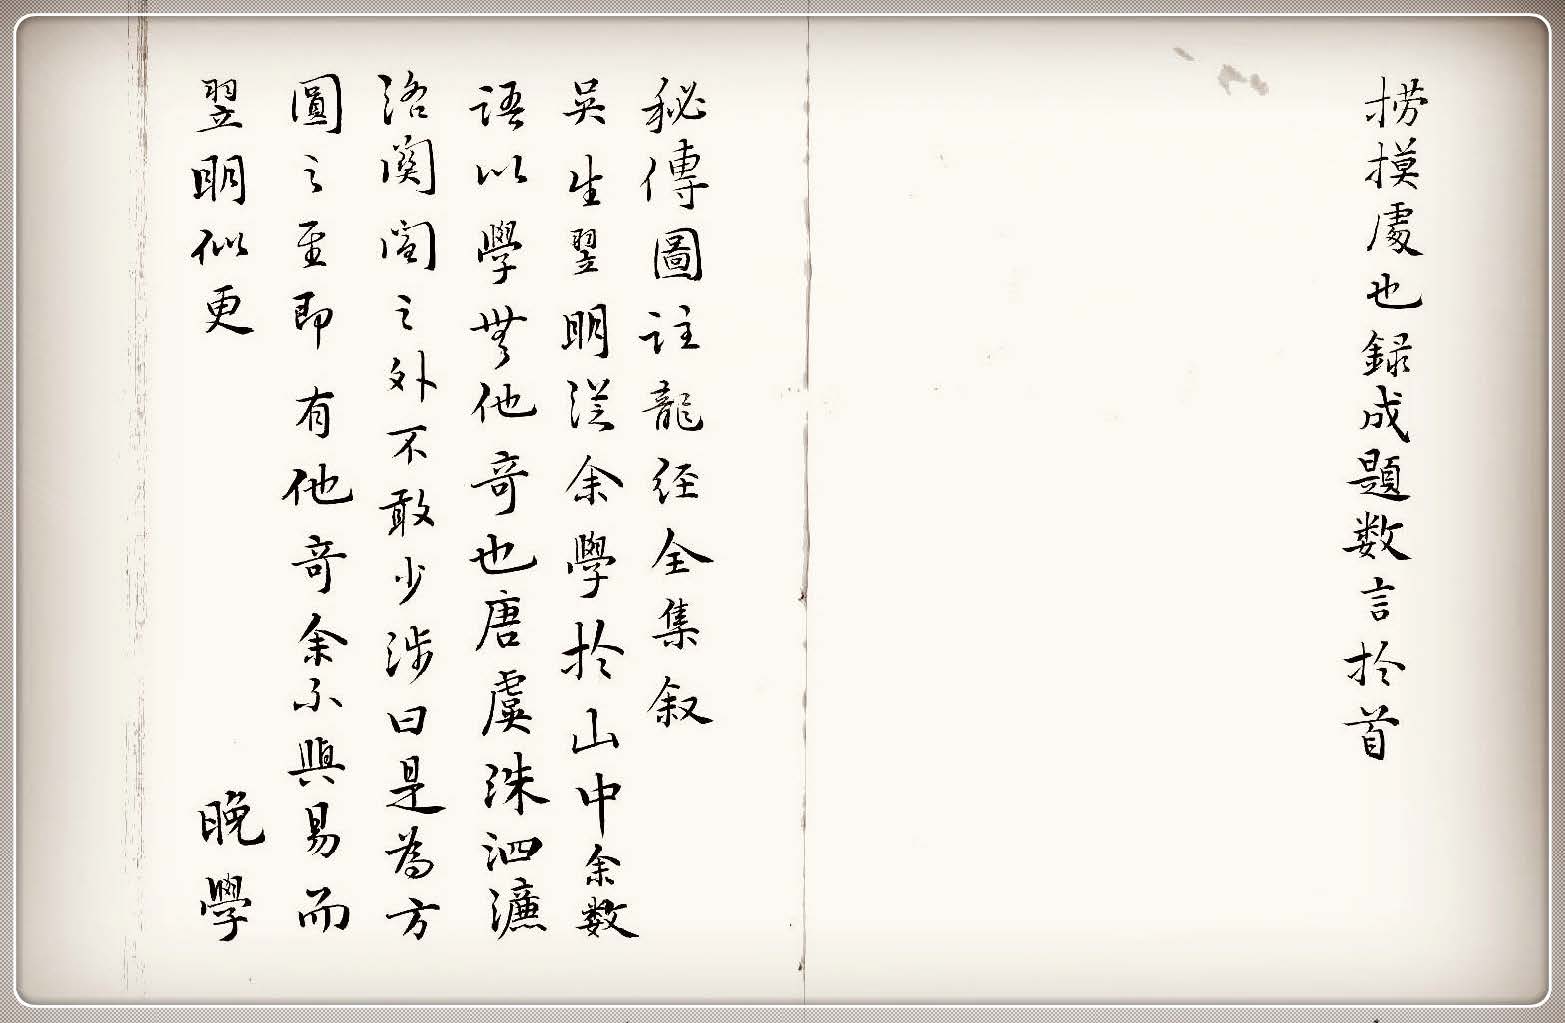 捞摸處也録成題数言扵首
秘傳圖註龍经全集叙
吳生翌明從余學扵山中余数
語以學無他竒也唐虞洙泗濂
洛関閩之外不敢少涉曰是為方
圓之至即有他竒余不與易而
翌明似更晚學